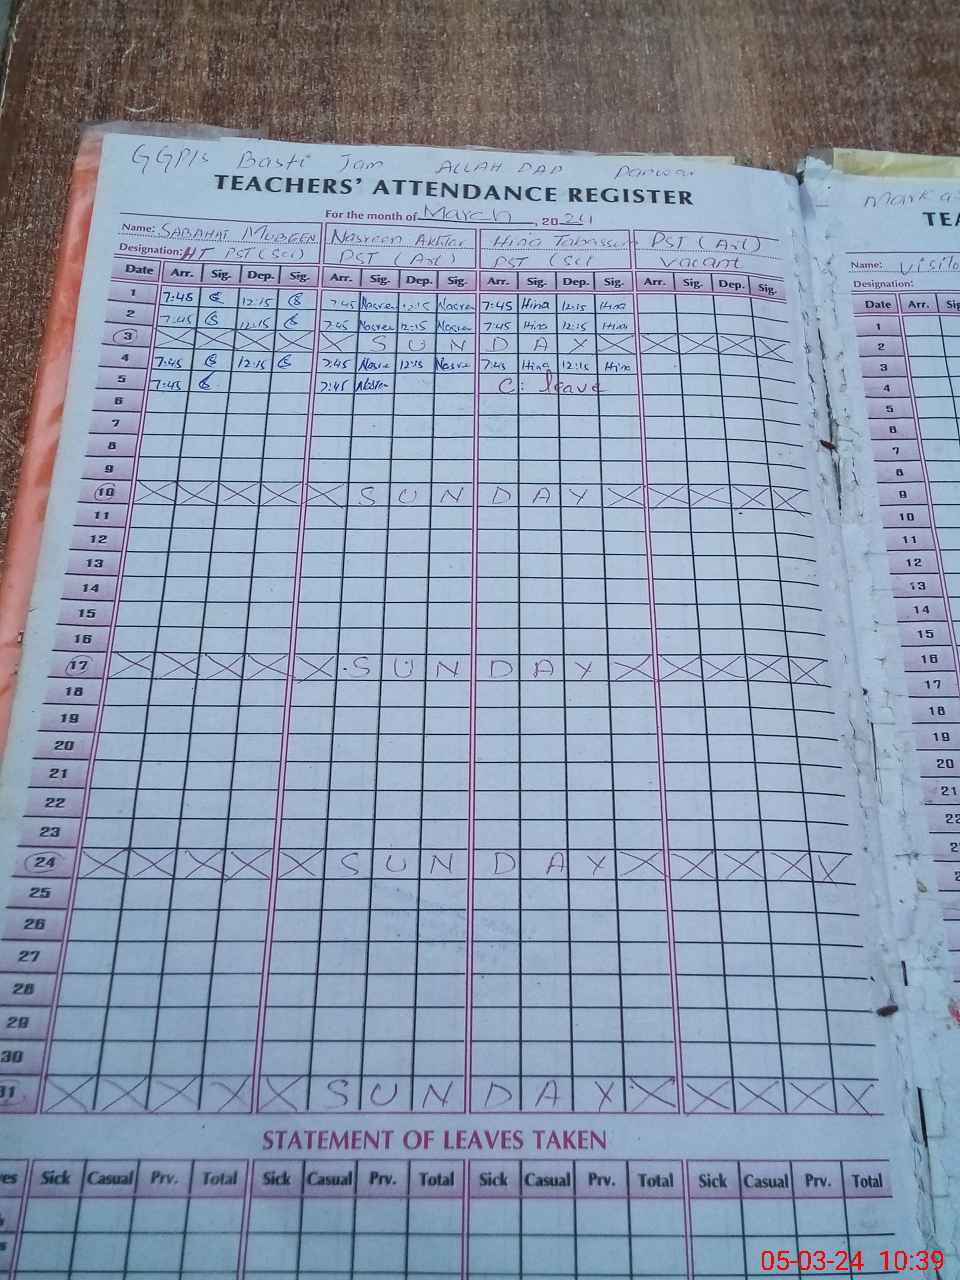 GGP/s Basti Jam ALLAH DAD
TEACHERS' ATTENDANCE REGISTER
For the month of March, 2024
Name: SABAHAT MUBEEN Nasreen Akhtar Hina Tabassum PST (Art)
Designation: HT PST (Sci) PST (Art) PST (Sci Vacant
Date Arr. Sig. Dep. Sig. Arr. Sig. Dep. Sig. Arr. Sig. Dep. Sig. Arr. Sig. Dep. Sig.
1 7:45 12:15 7:45 Nasree 12:15 Nasree 7:45 Hina 12:15 Hina
2 7:45 12:15 7:45 Nasree 12:15 Nasree 7:45 Hina 12:15 Hina
3 SUNDAY
4 7:45 12:15 7:45 Nasre 12:15 Nasre 7:45 Hina 12:15 Hina
5 7:45 7:45 Nasre C: leave
6
7
8
9
10 SUNDAY
11
12
13
14
15
16
17 SUNDAY
18
19
20
21
22
23
24 SUNDAY
25
26
27
28
29
30
31 SUNDAY
STATEMENT OF LEAVES TAKEN
Sick Casual Prv. Total Sick Casual Prv. Total Sick Casual Prv. Total Sick Casual Prv. Total
Marka
TEA
Name: Visito
Designation:
Date Arr. Sig
1
2
3
4
5
6
7
8
9
10
11
12
13
14
15
16
17
18
19
20
21
22
05-03-24 10:39